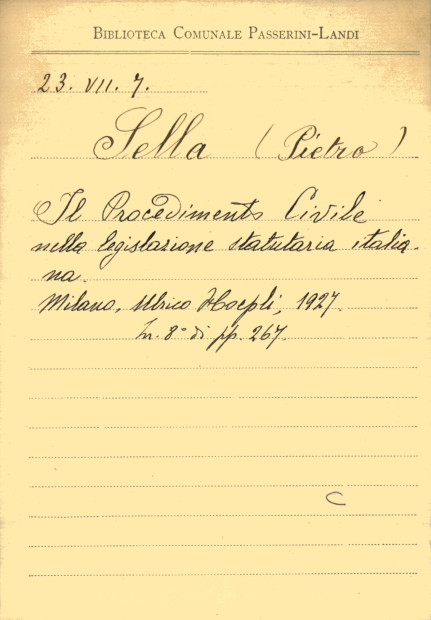 BIBLIOTECA COMUNALE PASSERINI-LANDI
23. VII. 7.
Sella (Pietro)
Il Procedimento Civile
nella legislazione statutaria italia-
na.
Milano, Ulrico Hoepli, 1927.
In 8° di pp. 267.
C